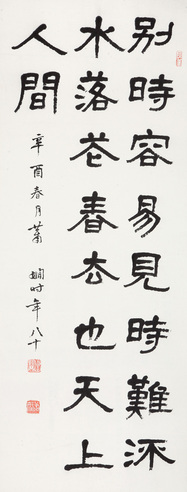 別時容易見時難流
水落花春去也天上
人間
辛酉春月蕭嫻時年八十